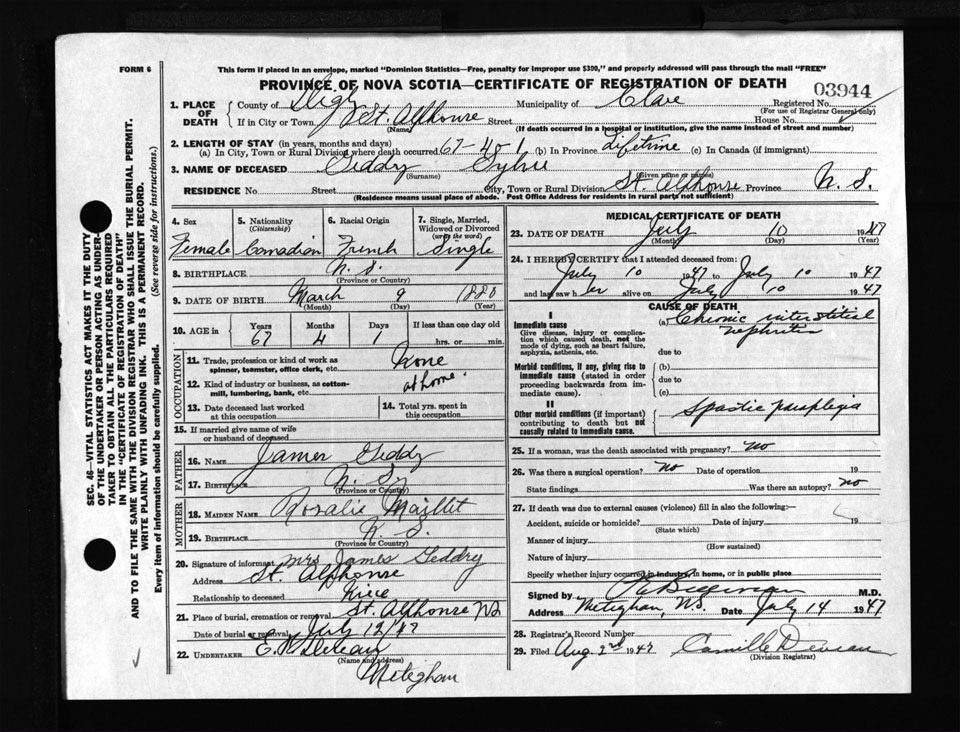 FORM 6
This form if placed in an envelope, marked "Dominion Statistics—Free, penalty for improper use $300," and properly addressed will pass through the mail "FREE"
PROVINCE OF NOVA SCOTIA—CERTIFICATE OF REGISTRATION OF DEATH
03944
1. PLACE OF DEATH County of Digby Municipality of Clare Registered No.
(For use of Registrar General only)
If in City or Town St. Alphonse Street House No.
(Name) (If death occurred in a hospital or institution, give the name instead of street and number)
2. LENGTH OF STAY (in years, months and days)
(a) In City, Town or Rural Division where death occurred 67-4-1 (b) In Province Lifetime (c) In Canada (if immigrant)
3. NAME OF DECEASED Geddry Sylvie
(Surname) (Given name or names)
RESIDENCE No. Street City, Town or Rural Division St. Alphonse Province N. S.
(Residence means usual place of abode. Post Office Address for residents in rural parts not sufficient)
4. Sex Female
5. Nationality (Citizenship) Canadian
6. Racial Origin French
7. Single, Married, Widowed or Divorced (write the word) Single
8. BIRTHPLACE N. S.
(Province or Country)
9. DATE OF BIRTH March 9 1880
(Month) (Day) (Year)
10. AGE in Years Months Days If less than one day old
67 4 1 hrs. or min.
OCCUPATION
11. Trade, profession or kind of work as spinner, teamster, office clerk, etc. None
12. Kind of industry or business, as cotton-mill, lumbering, bank, etc. at home.
13. Date deceased last worked at this occupation
14. Total yrs. spent in this occupation
15. If married give name of wife or husband of deceased
FATHER
16. Name James Geddry
17. Birthplace N. S.
(Province or Country)
MOTHER
18. Maiden Name Rosalie Maillet
19. Birthplace N. S.
(Province or Country)
20. Signature of informant Mrs James Geddry
Address St. Alphonse
Relationship to deceased Niece
21. Place of burial, cremation or removal St. Alphonse NS
Date of burial or removal July 12/47
22. UNDERTAKER
(Name and address)
Meteghan
MEDICAL CERTIFICATE OF DEATH
23. DATE OF DEATH July 10 1947
(Month) (Day) (Year)
24. I HEREBY CERTIFY that I attended deceased from:
July 10 1947 to July 10 1947
and last saw her alive on July 10 1947
CAUSE OF DEATH
I
Immediate cause
Give disease, injury or complication which caused death, not the mode of dying, such as heart failure, asphyxia, asthenia, etc.
(a) Chronic interstitial nephritis
due to
Morbid conditions, if any, giving rise to immediate cause (stated in order proceeding backwards from immediate cause).
(b)
due to
(c)
II
Other morbid conditions (if important) contributing to death but not causally related to immediate cause.
Spastic paraplegia
25. If a woman, was the death associated with pregnancy? no
26. Was there a surgical operation? no Date of operation 19
State findings Was there an autopsy? no
27. If death was due to external causes (violence) fill in also the following:—
Accident, suicide or homicide? Date of injury 19
(State which)
Manner of injury
(How sustained)
Nature of injury
Specify whether injury occurred in industry, in home, or in public place
Signed by M.D.
Address Meteghan, N.S. Date July 14 1947
28. Registrar's Record Number
29. Filed Aug. 2nd 1947 Camille
(Division Registrar)
SEC. 46—VITAL STATISTICS ACT MAKES IT THE DUTY
OF THE UNDERTAKER OR PERSON ACTING AS UNDER-
TAKER TO OBTAIN ALL THE PARTICULARS REQUIRED
IN THE "CERTIFICATE OF REGISTRATION OF DEATH"
AND TO FILE THE SAME WITH THE DIVISION REGISTRAR WHO SHALL ISSUE THE BURIAL PERMIT.
WRITE PLAINLY WITH UNFADING INK. THIS IS A PERMANENT RECORD.
Every item of information should be carefully supplied. (See reverse side for instructions.)